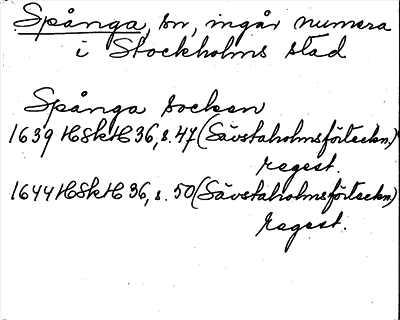 Spånga, sn, ingår numera
i Stockholms stad
Spånga socken
1639 HSkH 36, s. 47 (Sävstaholmsförteckn.)
regest.
1644 HSkH 36, s. 50 (Sävstaholmsförteckn.)
regest.